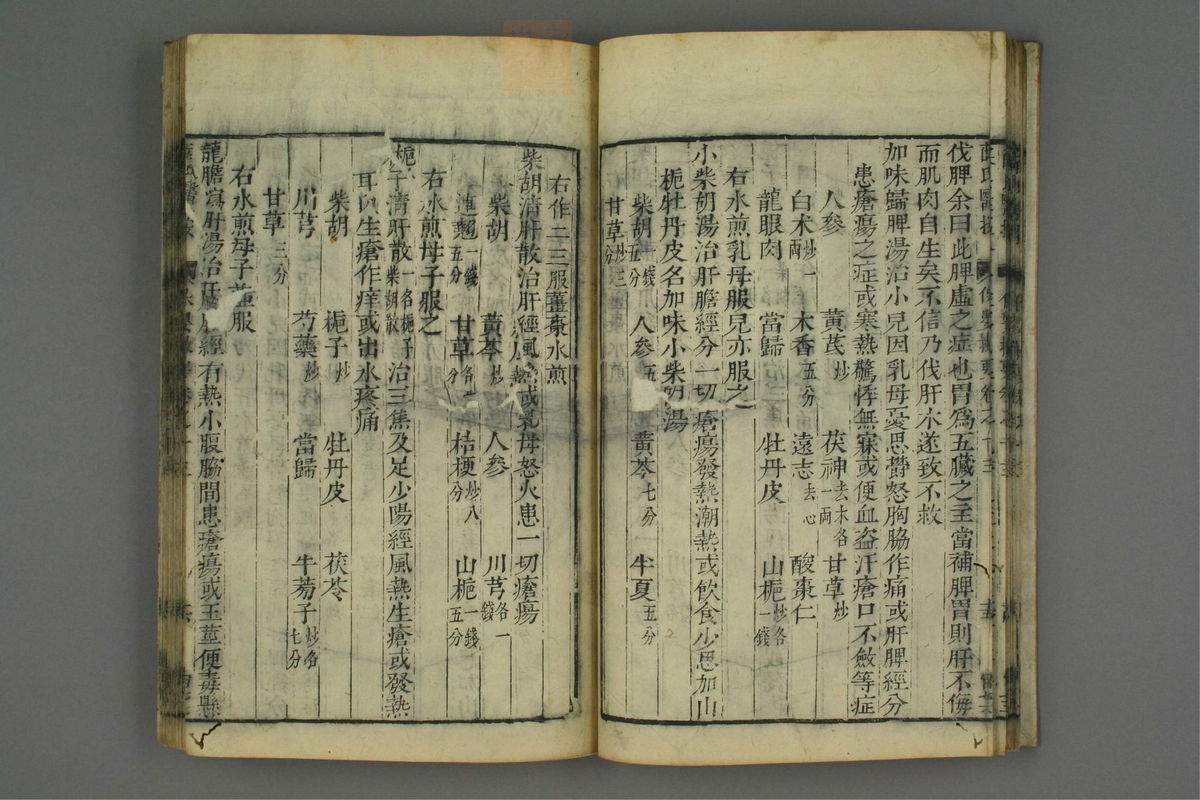 伐脾余曰此脾虛之症也胃爲五臟之主當補脾胃則肝不侮
而肌肉自生矣不信乃伐肝木遂致不救
加味歸脾湯治小兒因乳母憂思鬱怒胸脇作痛或肝脾經分
患瘡瘍之症或寒熱驚悸無寐或便血盜汗瘡口不斂等症
人參 黃芪炒 茯神去木各一兩 甘草炒
白术炒一兩 木香五分 遠志去心 酸棗仁
龍眼肉 當歸 牡丹皮 山梔炒各一錢
右水煎乳母服兒亦服之
小柴胡湯治肝膽經分一切瘡瘍發熱潮熱或飲食少思加山
梔牡丹皮名加味小柴胡湯
柴胡一錢五分 人參五 黃芩七分 半夏五分
甘草炒三分
右作二三服薑棗水煎
柴胡清肝散治肝經風熱或乳母怒火患一切瘡瘍
柴胡 黃芩炒 人參 川芎各一錢
連翹一錢五分 甘草各五分 桔梗炒八分 山梔一錢五分
右水煎母子服之
梔子清肝散一名梔子柴胡散治三焦及足少陽經風熱生瘡或發熱
耳內生瘡作痒或出水疼痛
柴胡 梔子炒 牡丹皮 茯苓
川芎 芍藥炒 當歸 牛蒡子炒各七分
甘草三分
右水煎母子並服
龍膽瀉肝湯治肝經有熱小腹脇間患瘡瘍或玉莖便毒懸